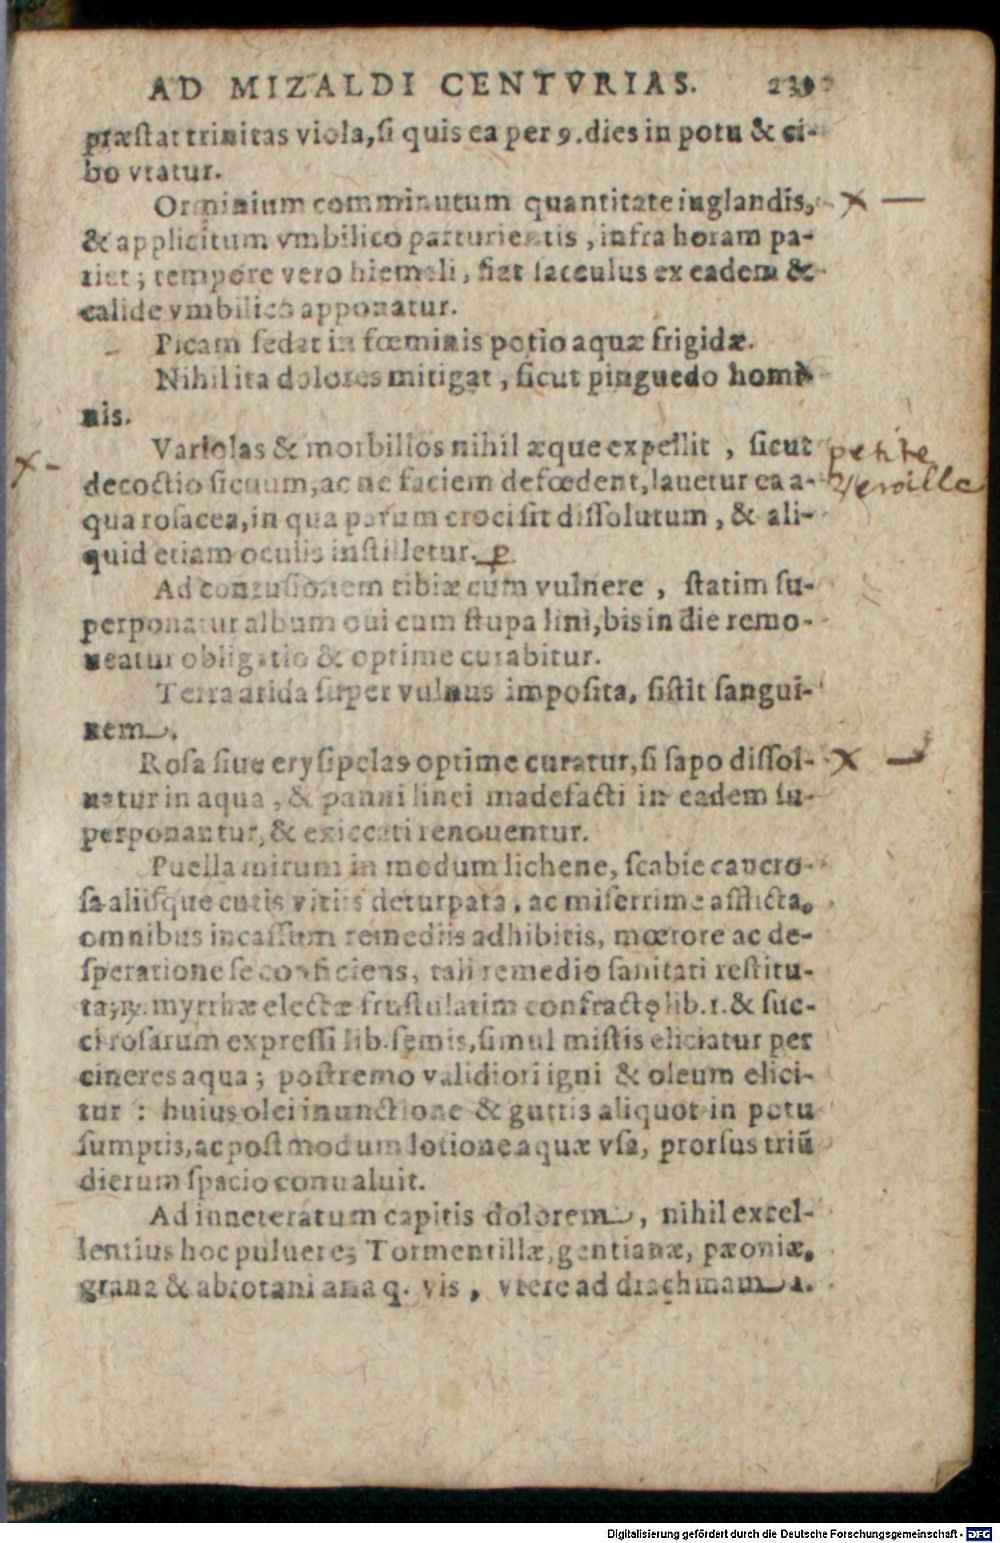 AD MIZALDI CENTVRIAS. 239
præſtat trinitas viola, ſi quis ea per 9. dies in potu & ci-
bo vtatur.
Orminium comminutum quantitate iuglandis, x —
& applicitum vmbilico parturientis, infra horam pa-
riet; tempore vero hiemali, fiat ſacculus ex eadem &
calide vmbilico apponatur.
Picam ſedat in fœminis potio aquæ frigidæ.
Nihil ita dolores mitigat, ſicut pinguedo homi-
nis.
Variolas & morbillos nihil æque expellit, ſicut petite
x - decoctio ficuum, ac ne faciem defœdent, lauetur ea a- veroille
qua roſacea, in qua parum croci ſit diſſolutum, & ali-
quid etiam oculis inſtilletur.
Ad contuſionem tibiæ cum vulnere, ſtatim ſu-
perponatur album oui cum ſtupa lini, bis in die remo-
ueatur obligatio & optime curabitur.
Terra arida ſuper vulnus impoſita, ſiſtit ſangui-
nem.
Roſa ſiue eryſipelas optime curatur, ſi ſapo diſſol- x —
uatur in aqua, & panni linei madefacti in eadem ſu-
perponantur, & exiccati renouentur.
Puella mirum in modum lichene, ſcabie cancro-
ſa aliiſque cutis vitiis deturpata, ac miſerrime afflicta,
omnibus incaſſum remediis adhibitis, mœrore ac de-
ſperatione ſe conficiens, tali remedio ſanitati reſtitu-
ta; ℞. myrrhæ electæ fruſtulatim confractę lib. 1. & ſuc-
ci roſarum expreſſi lib. ſemis, ſimul miſtis eliciatur per
cineres aqua; poſtremo validiori igni & oleum elici-
tur : huius olei inunctione & guttis aliquot in potu
ſumptis, ac poſtmodum lotione aquæ vſa, prorſus triū
dierum ſpacio conualuit.
Ad inueteratum capitis dolorem, nihil excel-
lentius hoc puluere; Tormentillæ, gentianæ, pæoniæ,
grana & abrotani ana q. vis, vtere ad drachmam 1.
Digitalisierung gefördert durch die Deutsche Forschungsgemeinschaft - DFG